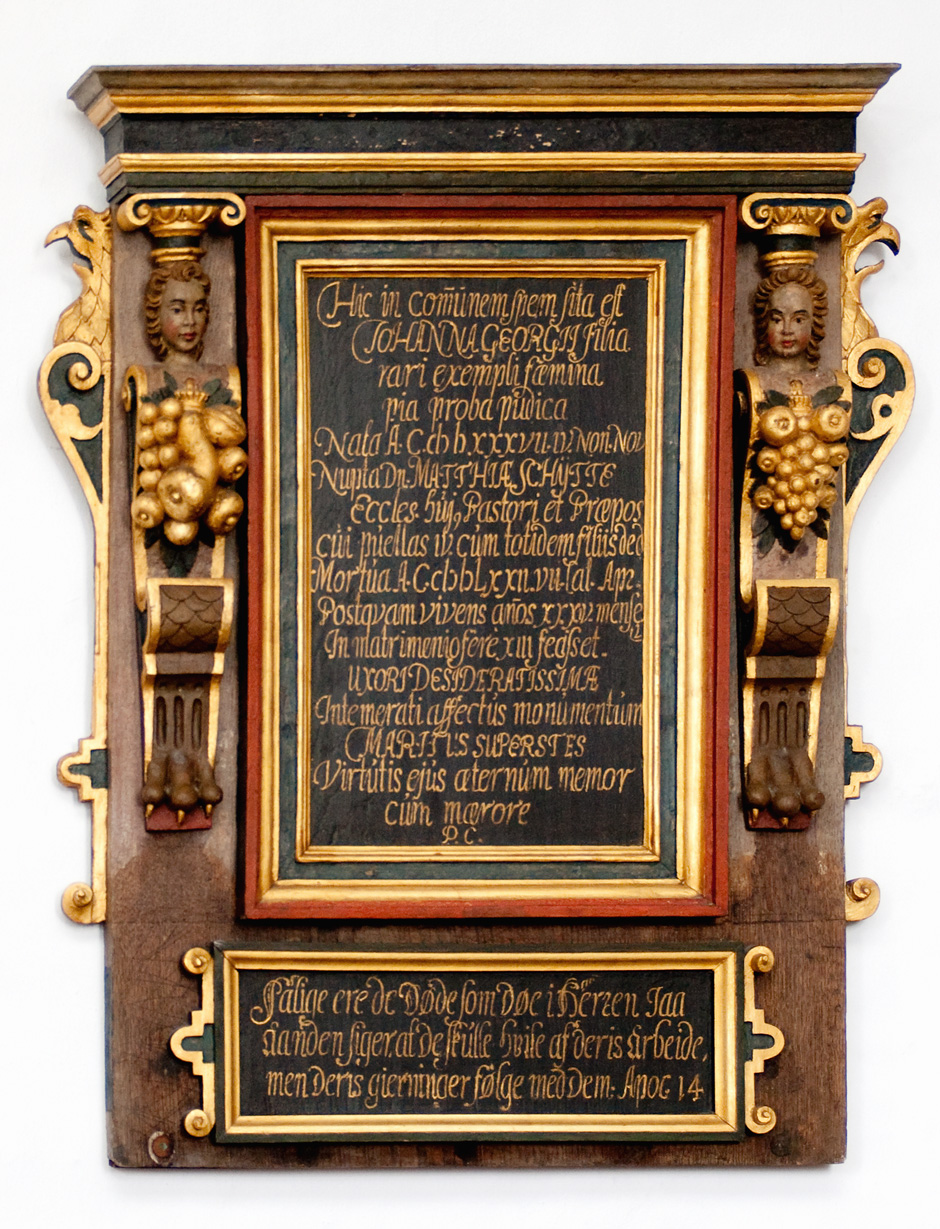 Hic in com̄unem spem sita est
IOHANNA GEORGII filia
rari exempli fæmina
pia proba pudica
Nata A. C. cIɔ Iɔ xxxvii. iv. Non. Nov
Nupta Dn. MATTHIÆ SCHYTTE
Eccles. huj9 Pastori et Præpos
cui puellas iv. cum totidem filiis ded
Mortua A. C. cIɔ Iɔ Lxxii. vii. Cal. Apr.
Postqvam vivens an̄os xxxiv. menses
In matrimonio fere xiii fecisset.
UXORI DESIDERATISSIMÆ
Intemerati affectus monumentum
MARITUS SUPERSTES
Virtutis ejus æternum memor
cum mærore
P. C.
Salige ere de Døde som døe i Herren Jaa
Aanden siger at De skulle hvile af deris Arbeide,
men Deris gierninger følge med Dem: Apoc 14